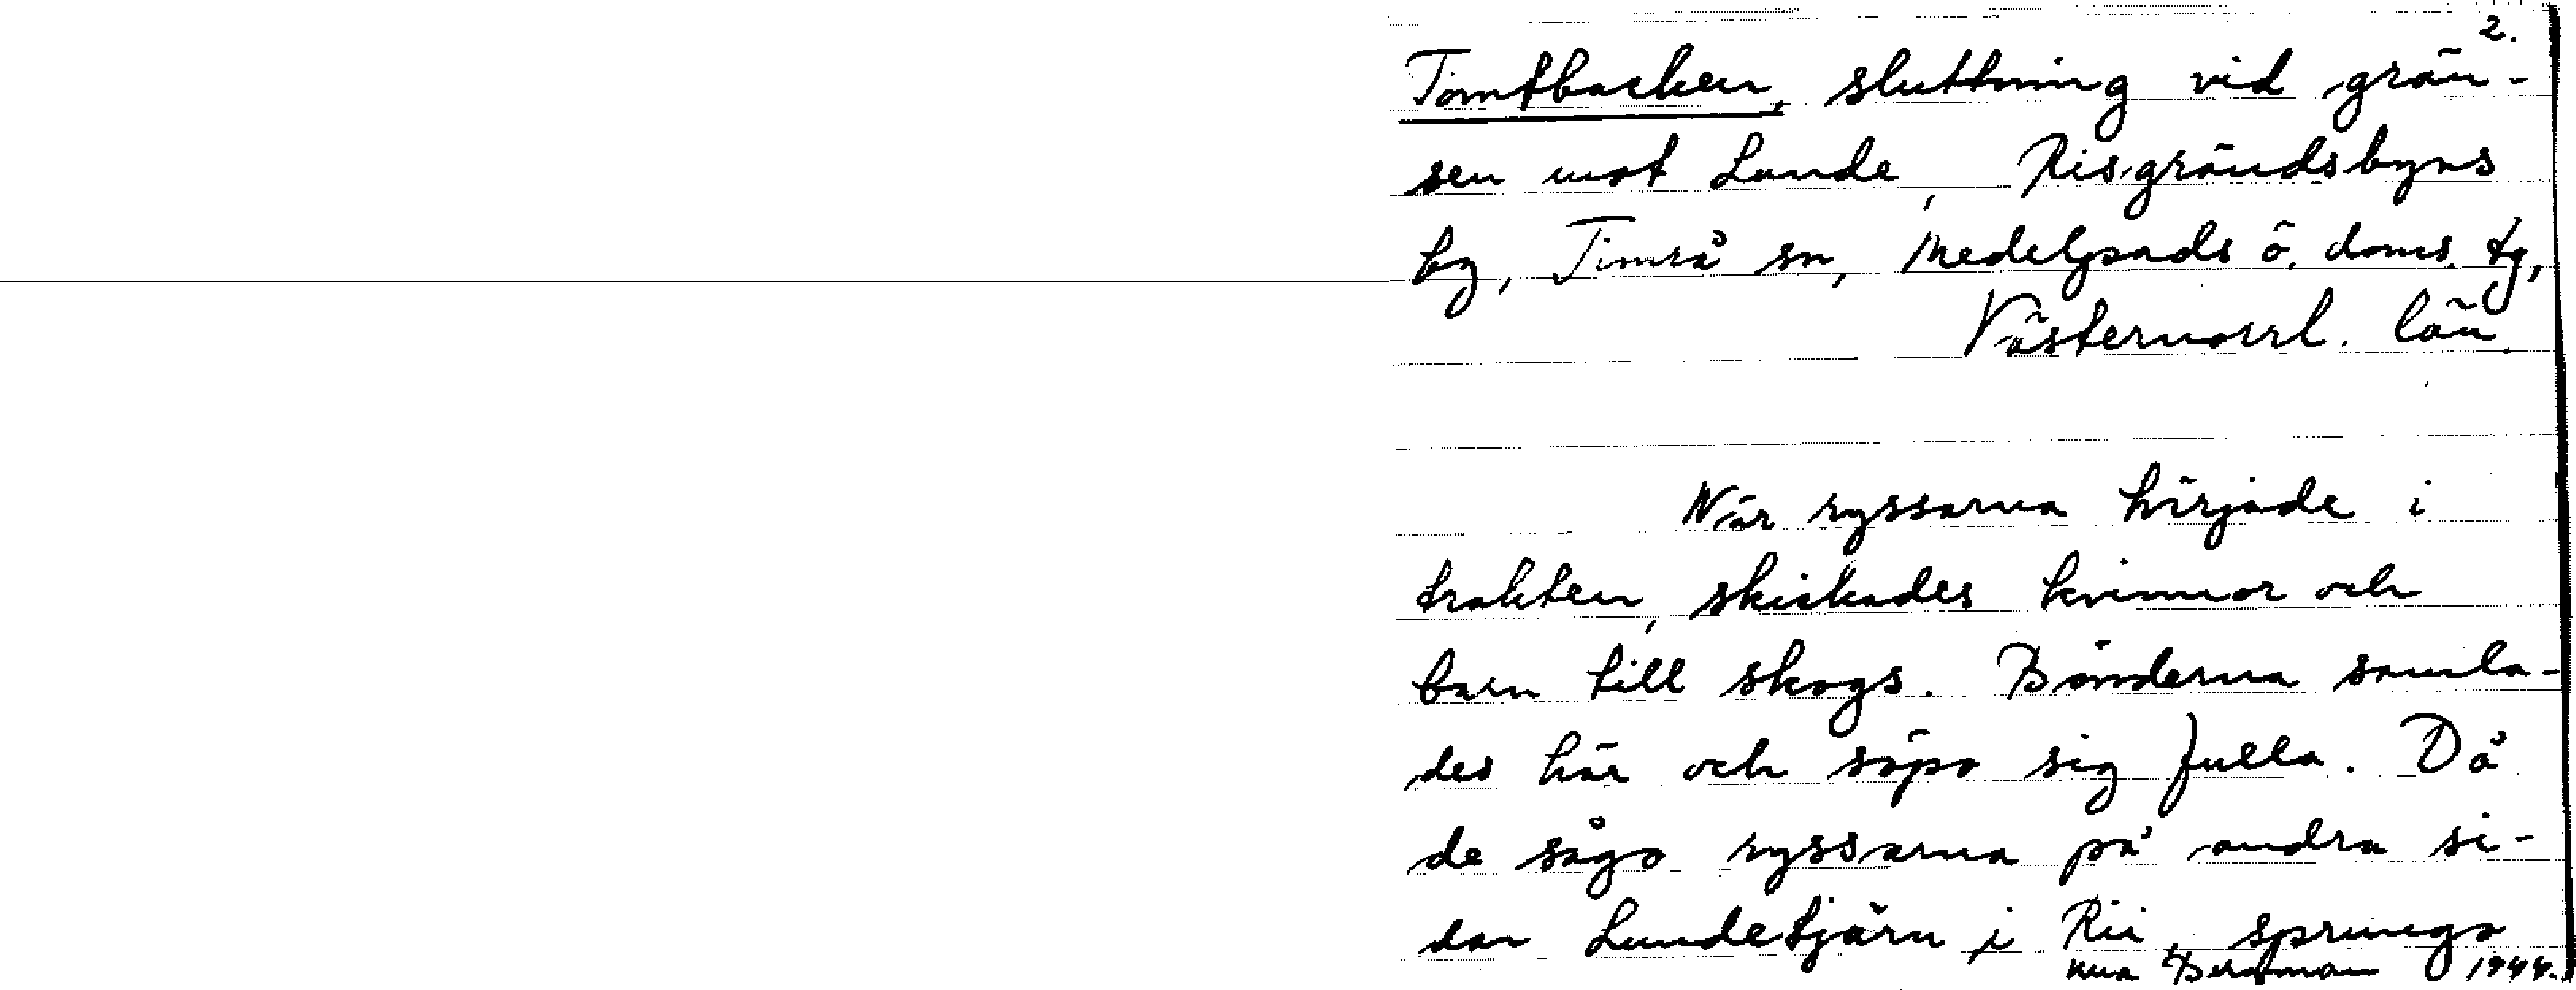 2.
Tomtbacken, sluttning vid grän-
sen mot Lunde, Risgrändsbyns
by, Timrå sn, Medelpads ö. doms. tg,
Västernorrl. län.
När ryssarna härjade i
trakten, skickades kvinnor och
barn till skogs. Bönderna samla-
des här och söpo sig fulla. Då
de sågo ryssarna på andra si-
dan Lundetjärn i Rii, sprungo
Bergman 1944.